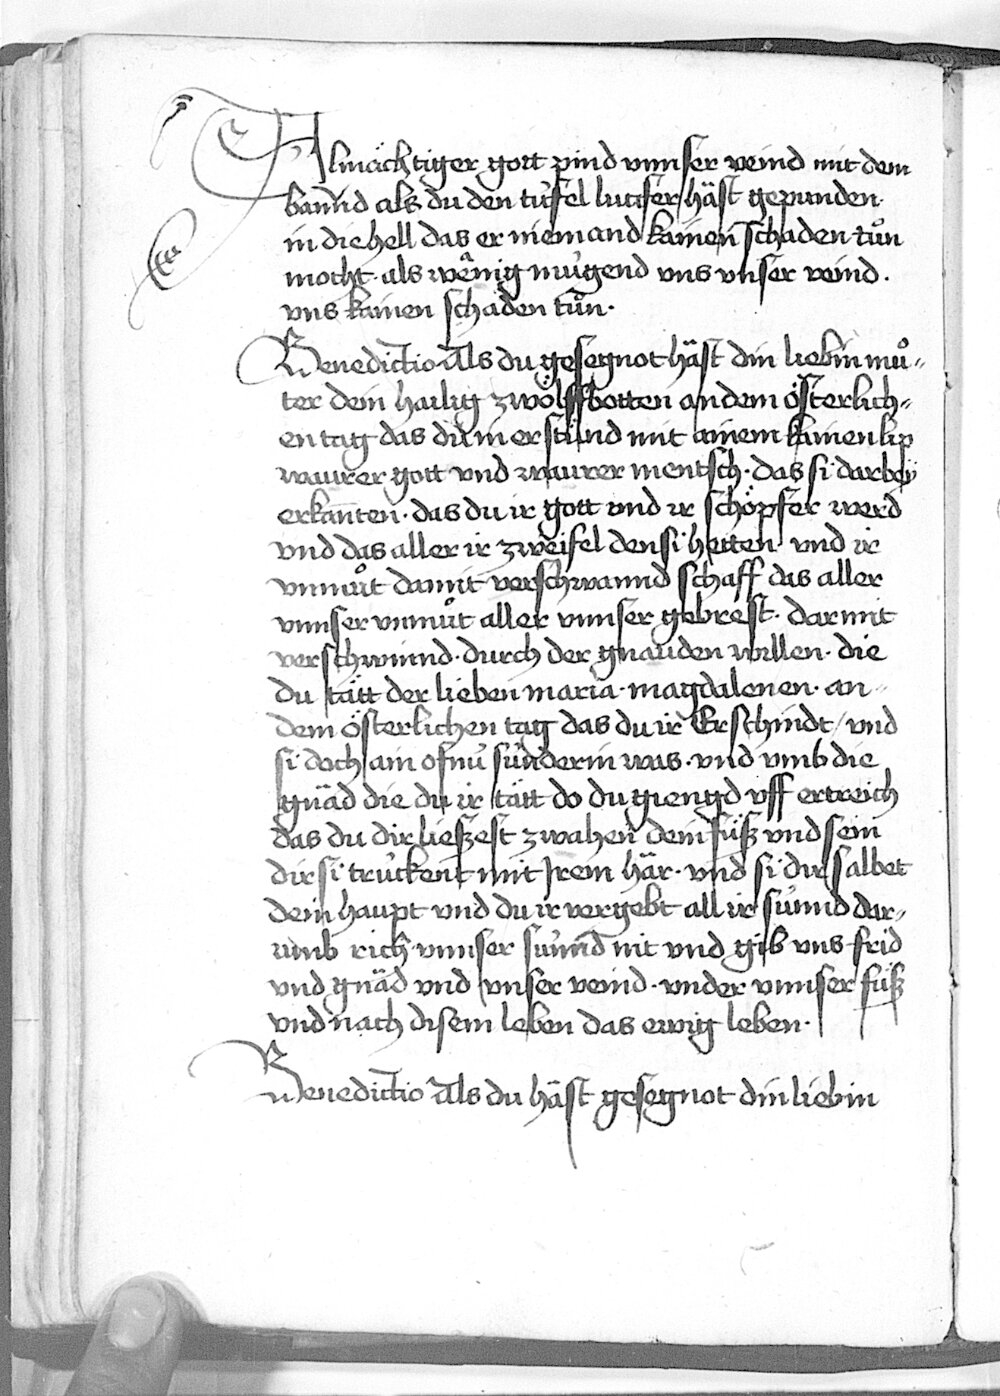 Almächtiger gott pind vnnser veind mit dem
bannd als du den tüfel lucifer häst gepunden
in die hell das er niemand kainen schaden tůn
mocht · als wênig mügend vns vnser veind ·
vns kainen schaden tůn ·
Benedictio Als du gesegnot häst din liebin můͦ-
ter dein hailig zwölffbotten an dem österlich-
en tag das du in erständ mit ainem lip
waurer gott vnd waurer mentsch · das si darbeÿ
erkanten · das du ir gott vnd ir schöpfer werd
vnd das aller ir zweifel den si hetten · vnd ir
vnmůt damit verschwannd schaff das aller
vnnser vnmůt aller vnnser gebrest · darmit
verschwinnd · durch der gnauden willen · die
du tätt der lieben maria · magdalenen · an-
dem österlichen tag das du ir Erschindt / vnd
si doch ain ofnü sünderin was · vnd vmb die
gnäd die du ir tätt do du giengd vff ertreich
das du dir liessest zwahen dein füss vnd sein
dir si trückent mit Irem här · vnd si dir salbet
dein haupt vnd du ir vergebt all ir sünnd dar-
umb rich vnnser sünnd nit vnd gib vns frid
vnd gnäd vnd vnser veind · vnder vnnser füß
vnd nach disem leben das ewig leben ·
Benedictio Als du häst gesegnot din liebin